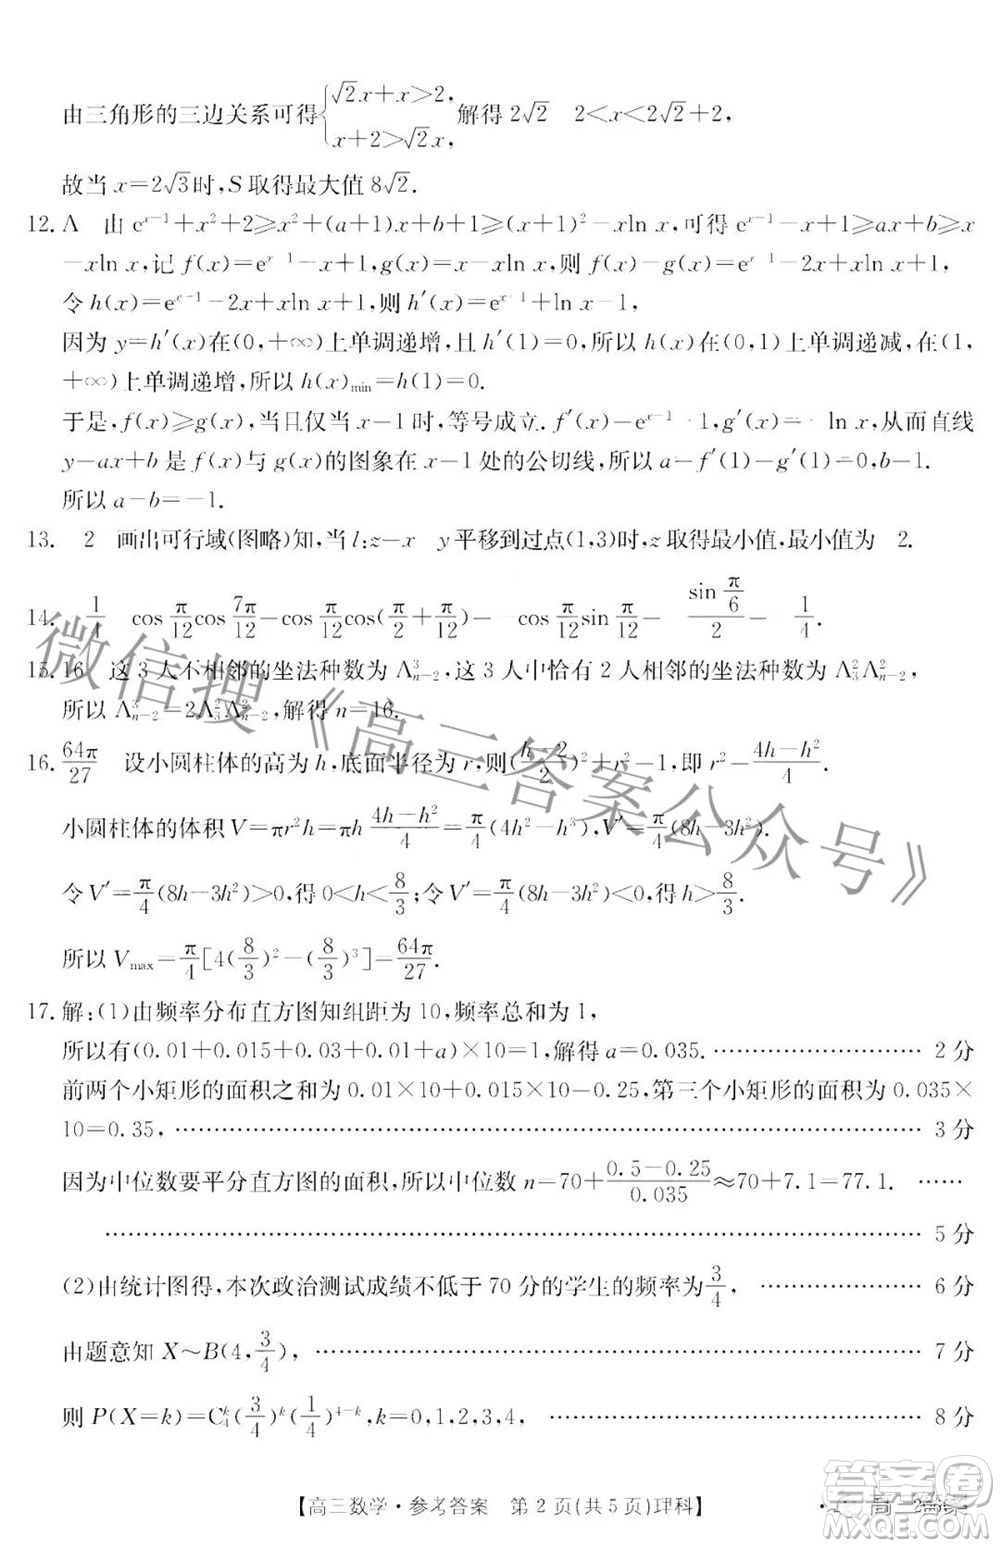 由三角形的三边关系可得{√2x+x>2, x+2>√2x, 解得 2√2 2<x<2√2+2,
故当 x=2√3时,S 取得最大值 8√2.
12. A 由 e^{x-1}+x²+2≥x²+(a+1)x+b+1≥(x+1)²-xln x,可得 e^{x-1}-x+1≥ax+b≥x
-xln x,记 f(x)=e^{x-1}-x+1,g(x)=x-xln x,则 f(x)-g(x)=e^{x-1}-2x+xln x+1,
令 h(x)=e^{x-1}-2x+xln x+1,则 h′(x)=e^{x-1}+ln x-1,
因为 y=h′(x)在(0,+∞)上单调递增,且 h′(1)=0,所以 h(x)在(0,1)上单调递减,在(1,
+∞)上单调递增,所以 h(x)_{min}=h(1)=0.
于是,f(x)≥g(x),当且仅当 x-1 时,等号成立.f′(x)-e^{x-1} 1,g′(x)- ln x,从而直线
y-ax+b 是 f(x)与 g(x)的图象在 x-1 处的公切线,所以 a-f′(1)-g′(1)-0,b-1.
所以 a-b=-1.
13. 2 画出可行域(图略)知,当 l:z-x y 平移到过点(1,3)时,z 取得最小值,最小值为 2.
14. 1/4 cos π/12 cos 7π/12-cos π/12 cos(π/2+π/12)- cos π/12 sin π/12- (sin π/6)/2- 1/4.
15. 16 这 3 人不相邻的坐法种数为 A³_{n-2},这 3 人中恰有 2 人相邻的坐法种数为 A²₃A²_{n-2},
所以 A³_{n-2}=2A²₃A²_{n-2},解得 n=16.
16. 64π/27 设小圆柱体的高为 h,底面半径为 r,则((h-2)/2)²+r²-1,即 r²-(4h-h²)/4.
小圆柱体的体积 V=πr²h=πh (4h-h²)/4=π/4(4h²-h³),V′=π/4(8h-3h²).
令 V′=π/4(8h-3h²)>0,得 0<h<8/3;令 V′=π/4(8h-3h²)<0,得 h>8/3.
所以 V_{max}=π/4[4(8/3)²-(8/3)³]=64π/27.
17. 解:(1)由频率分布直方图知组距为 10,频率总和为 1,
所以有(0.01+0.015+0.03+0.01+a)×10=1,解得 a=0.035. …………………… 2 分
前两个小矩形的面积之和为 0.01×10+0.015×10-0.25,第三个小矩形的面积为 0.035×
10=0.35, …………………… 3 分
因为中位数要平分直方图的面积,所以中位数 n=70+(0.5-0.25)/0.035≈70+7.1=77.1. ……
…………………… 5 分
(2)由统计图得,本次政治测试成绩不低于 70 分的学生的频率为 3/4, …………………… 6 分
由题意知 X~B(4,3/4), …………………… 7 分
则 P(X=k)=C^k_4(3/4)^k(1/4)^{4-k},k=0,1,2,3,4, …………………… 8 分
【高三数学·参考答案 第 2 页(共 5 页)理科】
微信搜《高三答案公众号》
答案圈
MXQE.COM